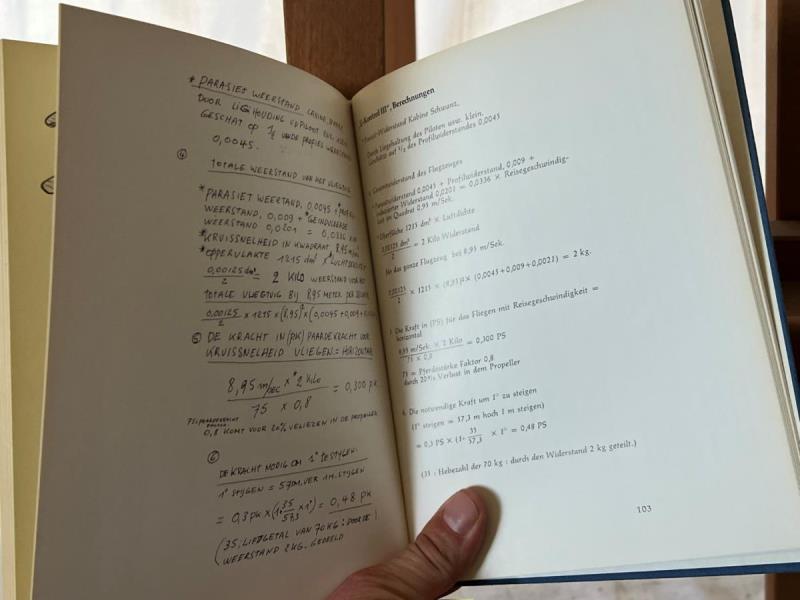 * PARASIET WEERSTAND CABINE,
DOOR LIGHOUDING
GESCHAT OP 1/2 VAN DE PROFIEL WEERSTAND
0,0045.
④
TOTALE WEERSTAND VAN HET VLIEGTUIG
* PARASIET WEERSTAND, 0,0045 + * PROFIEL
WEERSTAND, 0,009 + * GEINDUCEERDE
WEERSTAND 0,0201 = 0,0336
* KRUISSNELHEID IN KWADRAAT, 8,95
* OPPERVLAKTE 1215 dm² *
0,00125 dm³
2
= 2 KILO WEERSTAND
TOTALE VLIEGTUIG BIJ 8,95 METER PER
0,00125
2
× 1215 × (8,95)² × (0,0045 + 0,009 +
⑤ DE KRACHT IN (PK) PAARDEKRACHT VOOR
KRUISSNELHEID VLIEGEN = HORIZONTAAL
8,95 m/sec × * 2 KILO
75 × 0,8
= 0,300 pk
0,8 KOMT VOOR 20% VERLIEZEN IN DE PROPELLER
⑥
DE KRACHT NODIG OM 1° TE STYGEN.
1° STYGEN = 57 M. VER 1 M. STYGEN
= 0,3 pk × (1· 35/573 × 1°) = 0,48 pk
(35; LIFTGETAL VAN 70 KG : DOOR DE
WEERSTAND 2 KG. GEDEELD
I-Kontrol III", Berechnungen
Parasit-Widerstand Kabine Schwanz,
Durch Liegehaltung des Piloten usw. klein.
Geschätzt auf 1/2 des Profilwiderstandes 0,0045
Gesamtwiderstand des Flugzeuges
Parasitwiderstand 0,0045 + Profilwiderstand, 0,009 +
Induzierter Widerstand 0,0201 = 0,0336 × Reisegeschwindig-
keit im Quadrat 8,95 m/Sek.
Oberfläche 1215 dm² × Luftdichte
0,00125 dm³
2
= 2 Kilo Widerstand
für das ganze Flugzeug bei 8,95 m/Sek.
0,00125
2
× 1215 × (8,95)² × (0,0045 + 0,009 + 0,0021) = 2 kg.
Die Kraft in (PS) für das Fliegen mit Reisegeschwindigkeit =
horizontal
8,95 m/Sek. × 2 Kilo
75 × 0,8
= 0,300 PS
75 = Pferdestärke Faktor 0,8
durch 20% Verlust in dem Propeller
6. Die notwendige Kraft um 1° zu steigen
(1° steigen = 57,3 m hoch 1 m steigen)
= 0,3 PS × (1· 35/57,3 × 1° = 0,48 PS
(35 : Hebezahl der 70 kg : durch den Widerstand 2 kg geteilt.)
103